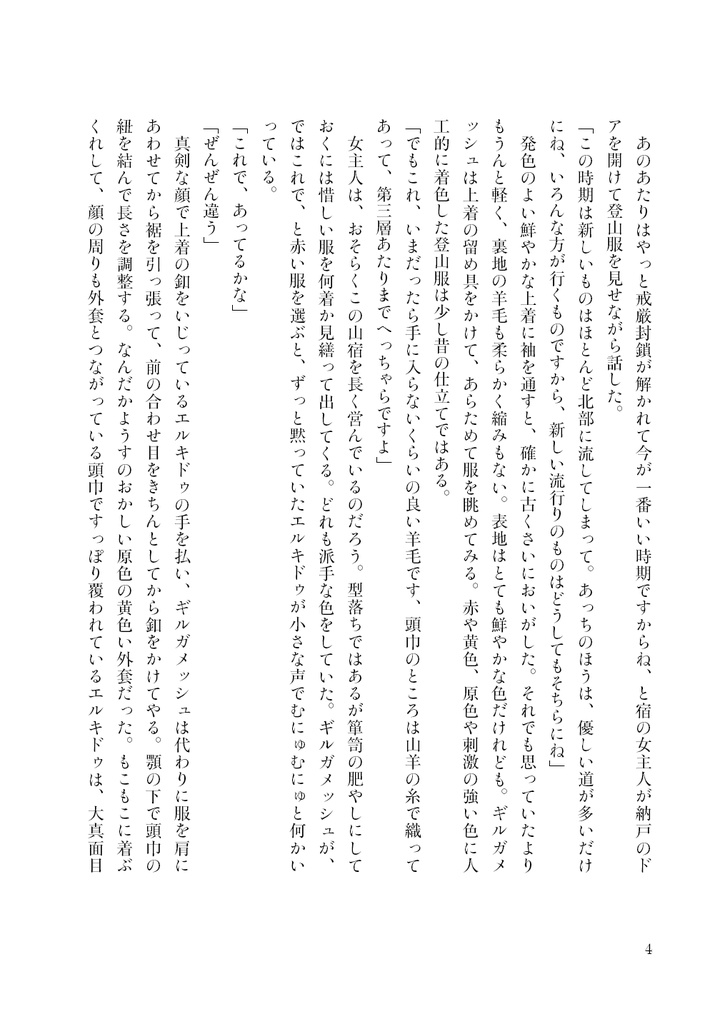 あのあたりはやっと戒厳封鎖が解かれて今が一番いい時期ですからね、と宿の女主人が納戸のド
アを開けて登山服を見せながら話した。
「この時期は新しいものはほとんど北部に流してしまって。あっちのほうは、優しい道が多いだけ
にね、いろんな方が行くものですから、新しい流行りのものはどうしてもそちらにね」
　発色のよい鮮やかな上着に袖を通すと、確かに古くさいにおいがした。それでも思っていたより
もうんと軽く、裏地の羊毛も柔らかく縮みもない。表地はとても鮮やかな色だけれども。ギルガメ
ッシュは上着の留め具をかけて、あらためて服を眺めてみる。赤や黄色、原色や刺激の強い色に人
工的に着色した登山服は少し昔の仕立てではある。
「でもこれ、いまだったら手に入らないくらいの良い羊毛です、頭巾のところは山羊の糸で織って
あって、第三層あたりまでへっちゃらですよ」
　女主人は、おそらくこの山宿を長く営んでいるのだろう。型落ちではあるが箪笥の肥やしにして
おくには惜しい服を何着か見繕って出してくる。どれも派手な色をしていた。ギルガメッシュが、
ではこれで、と赤い服を選ぶと、ずっと黙っていたエルキドゥが小さな声でむにゅむにゅと何かい
っている。
「これで、あってるかな」
「ぜんぜん違う」
　真剣な顔で上着の釦をいじっているエルキドゥの手を払い、ギルガメッシュは代わりに服を肩に
あわせてから裾を引っ張って、前の合わせ目をきちんとしてから釦をかけてやる。顎の下で頭巾の
紐を結んで長さを調整する。なんだかようすのおかしい原色の黄色い外套だった。もこもこに着ぶ
くれして、顔の周りも外套とつながっている頭巾ですっぽり覆われているエルキドゥは、大真面目
4